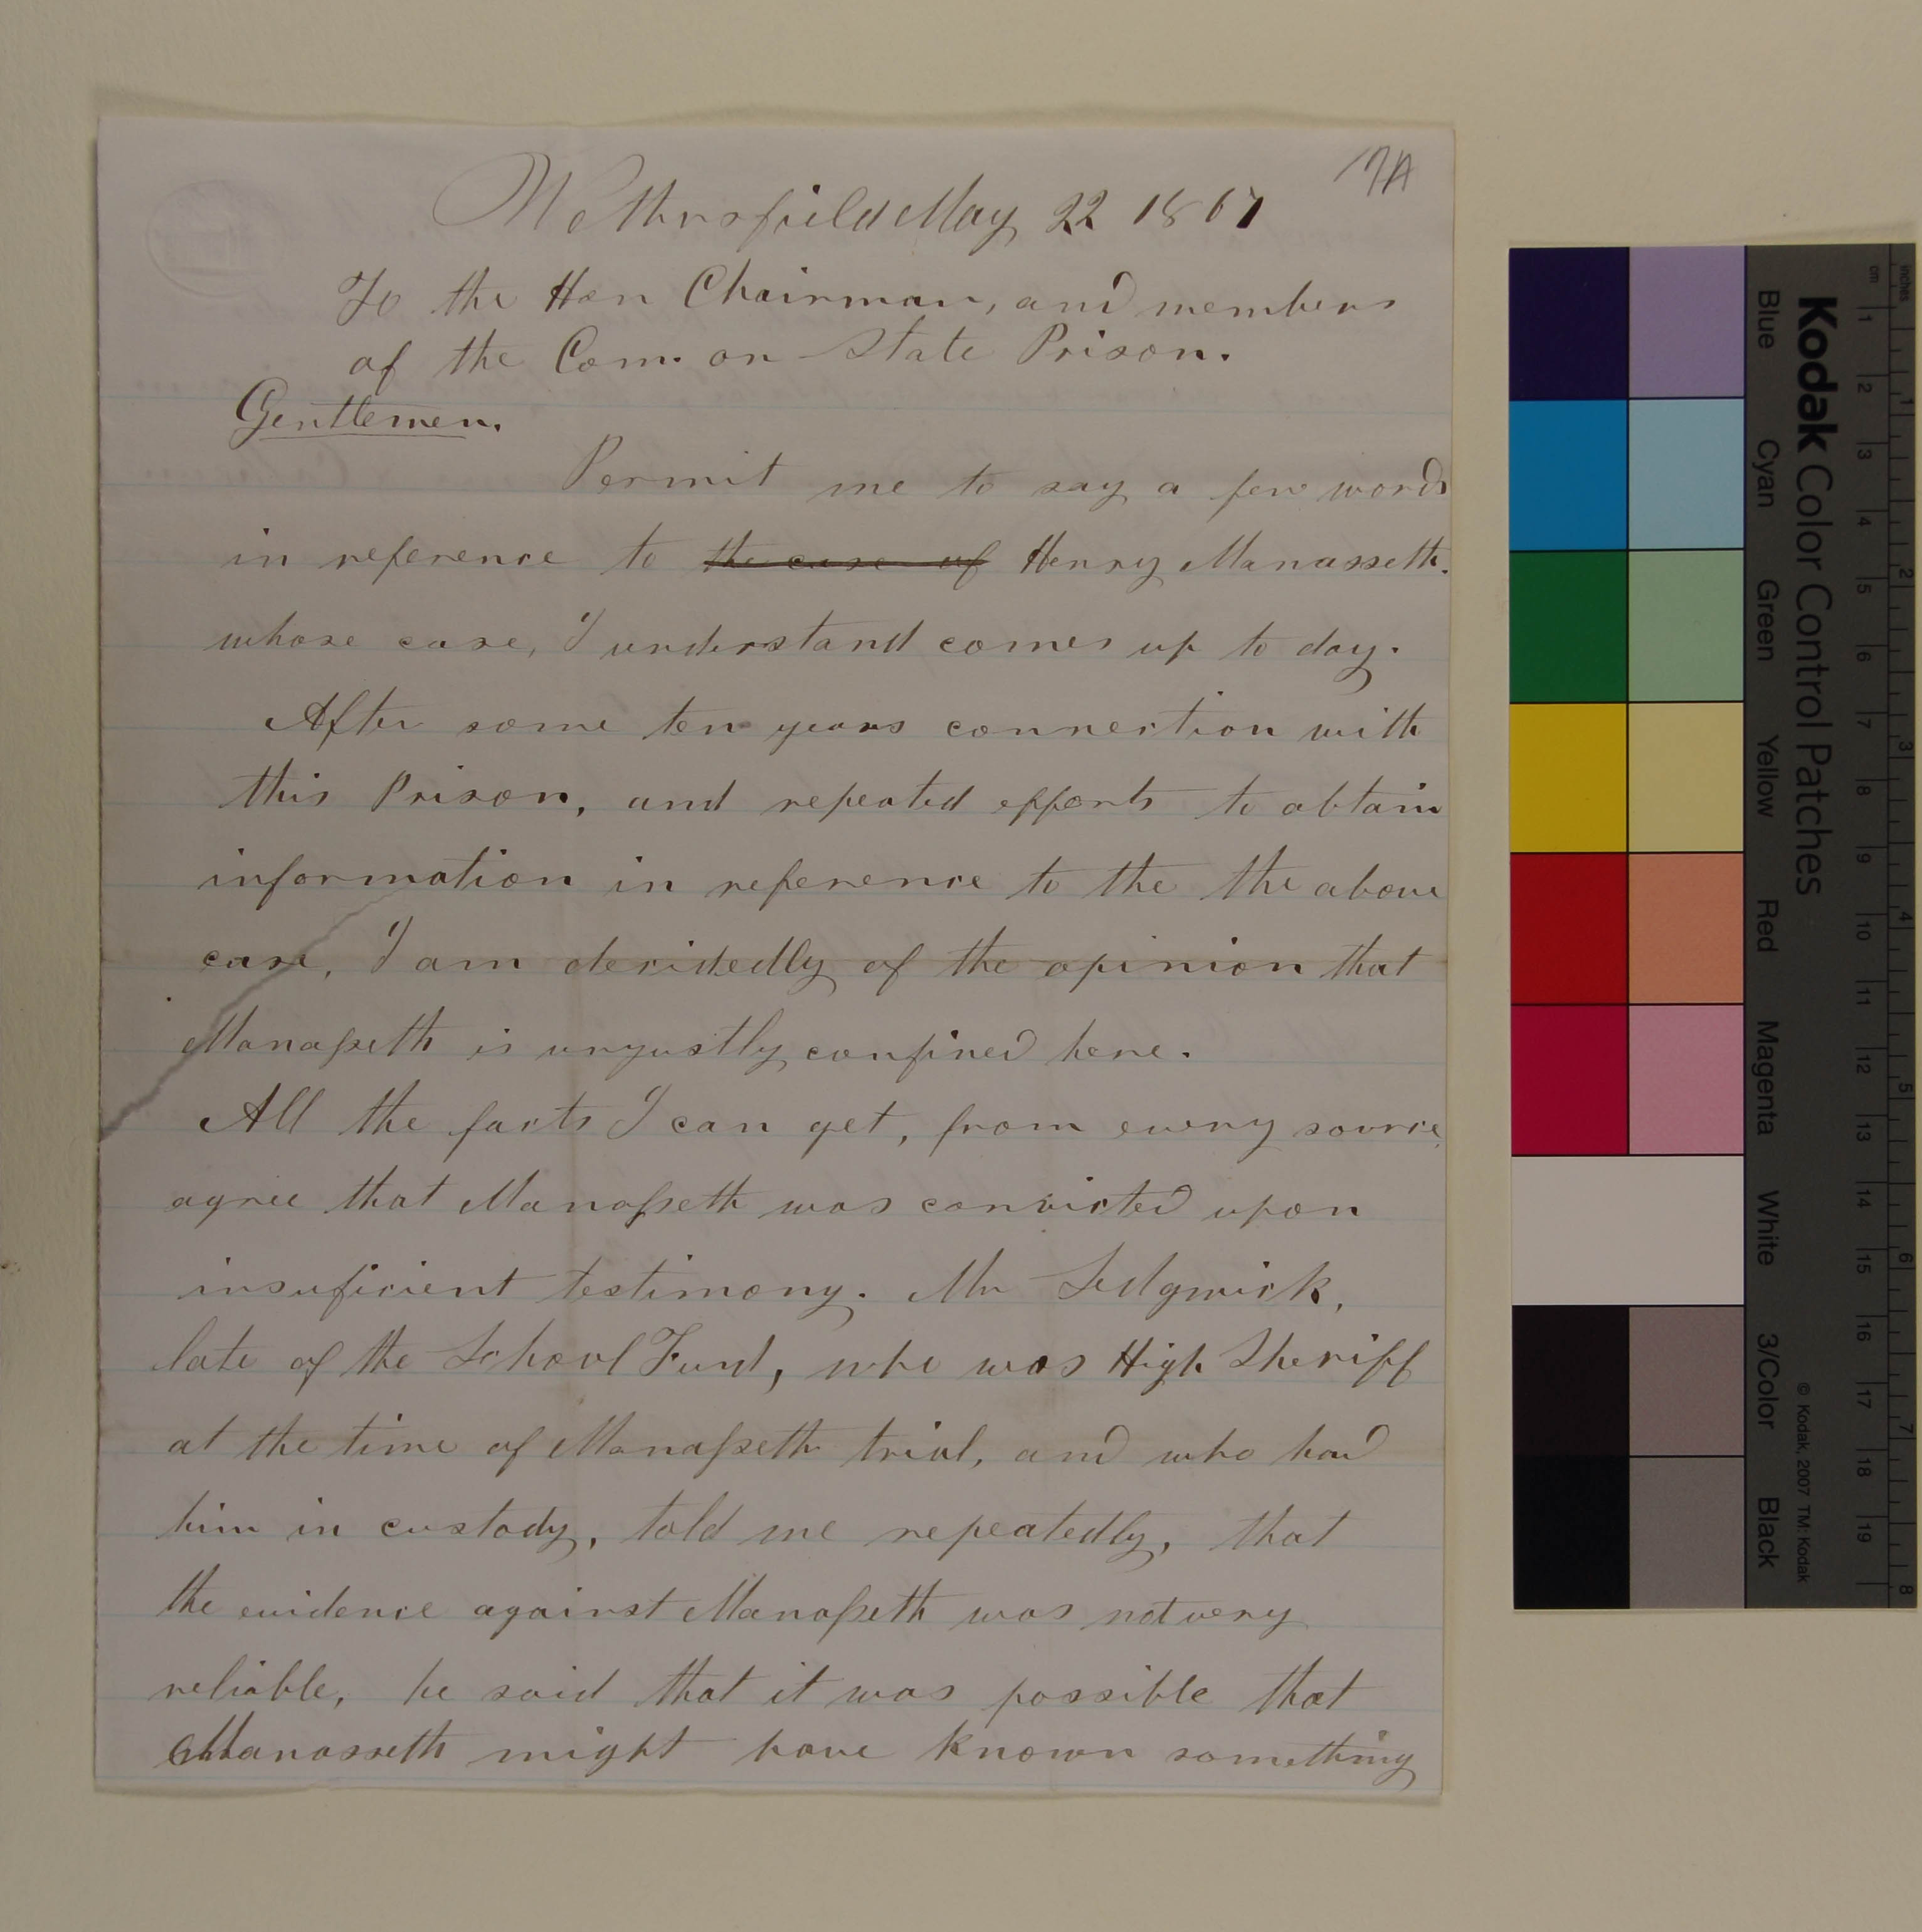 17A
Wethersfield May 22 1867
To the Hon Chairman, and members
of the Com. on State Prison.
Gentlemen.
Permit me to say a few words
in reference to the case of Henry Manasseth.
whose case, I understand comes up to day.
After some ten years connection with
this Prison, and repeated efforts to obtain
information in reference to the the above
case, I am decidedly of the opinion that
Manasseth is unjustly confined here.
All the facts I can get, from every source,
agree that Manasseth was convicted upon
insuficient testimony. Mr Sedgwick,
late of the School Fund, who was High Sheriff
at the time of Manasseth trial, and who had
him in custody, told me repeatedly, that
the evidence against Manasseth was not very
reliable, he said that it was possible that
Manasseth might have known something
Kodak Color Control Patches
Blue Cyan Green Yellow Red Magenta White 3/Color Black
© Kodak, 2007 TM: Kodak
cm 1 2 3 4 5 6 7 8 9 10 11 12 13 14 15 16 17 18 19
inches 1 2 3 4 5 6 7 8